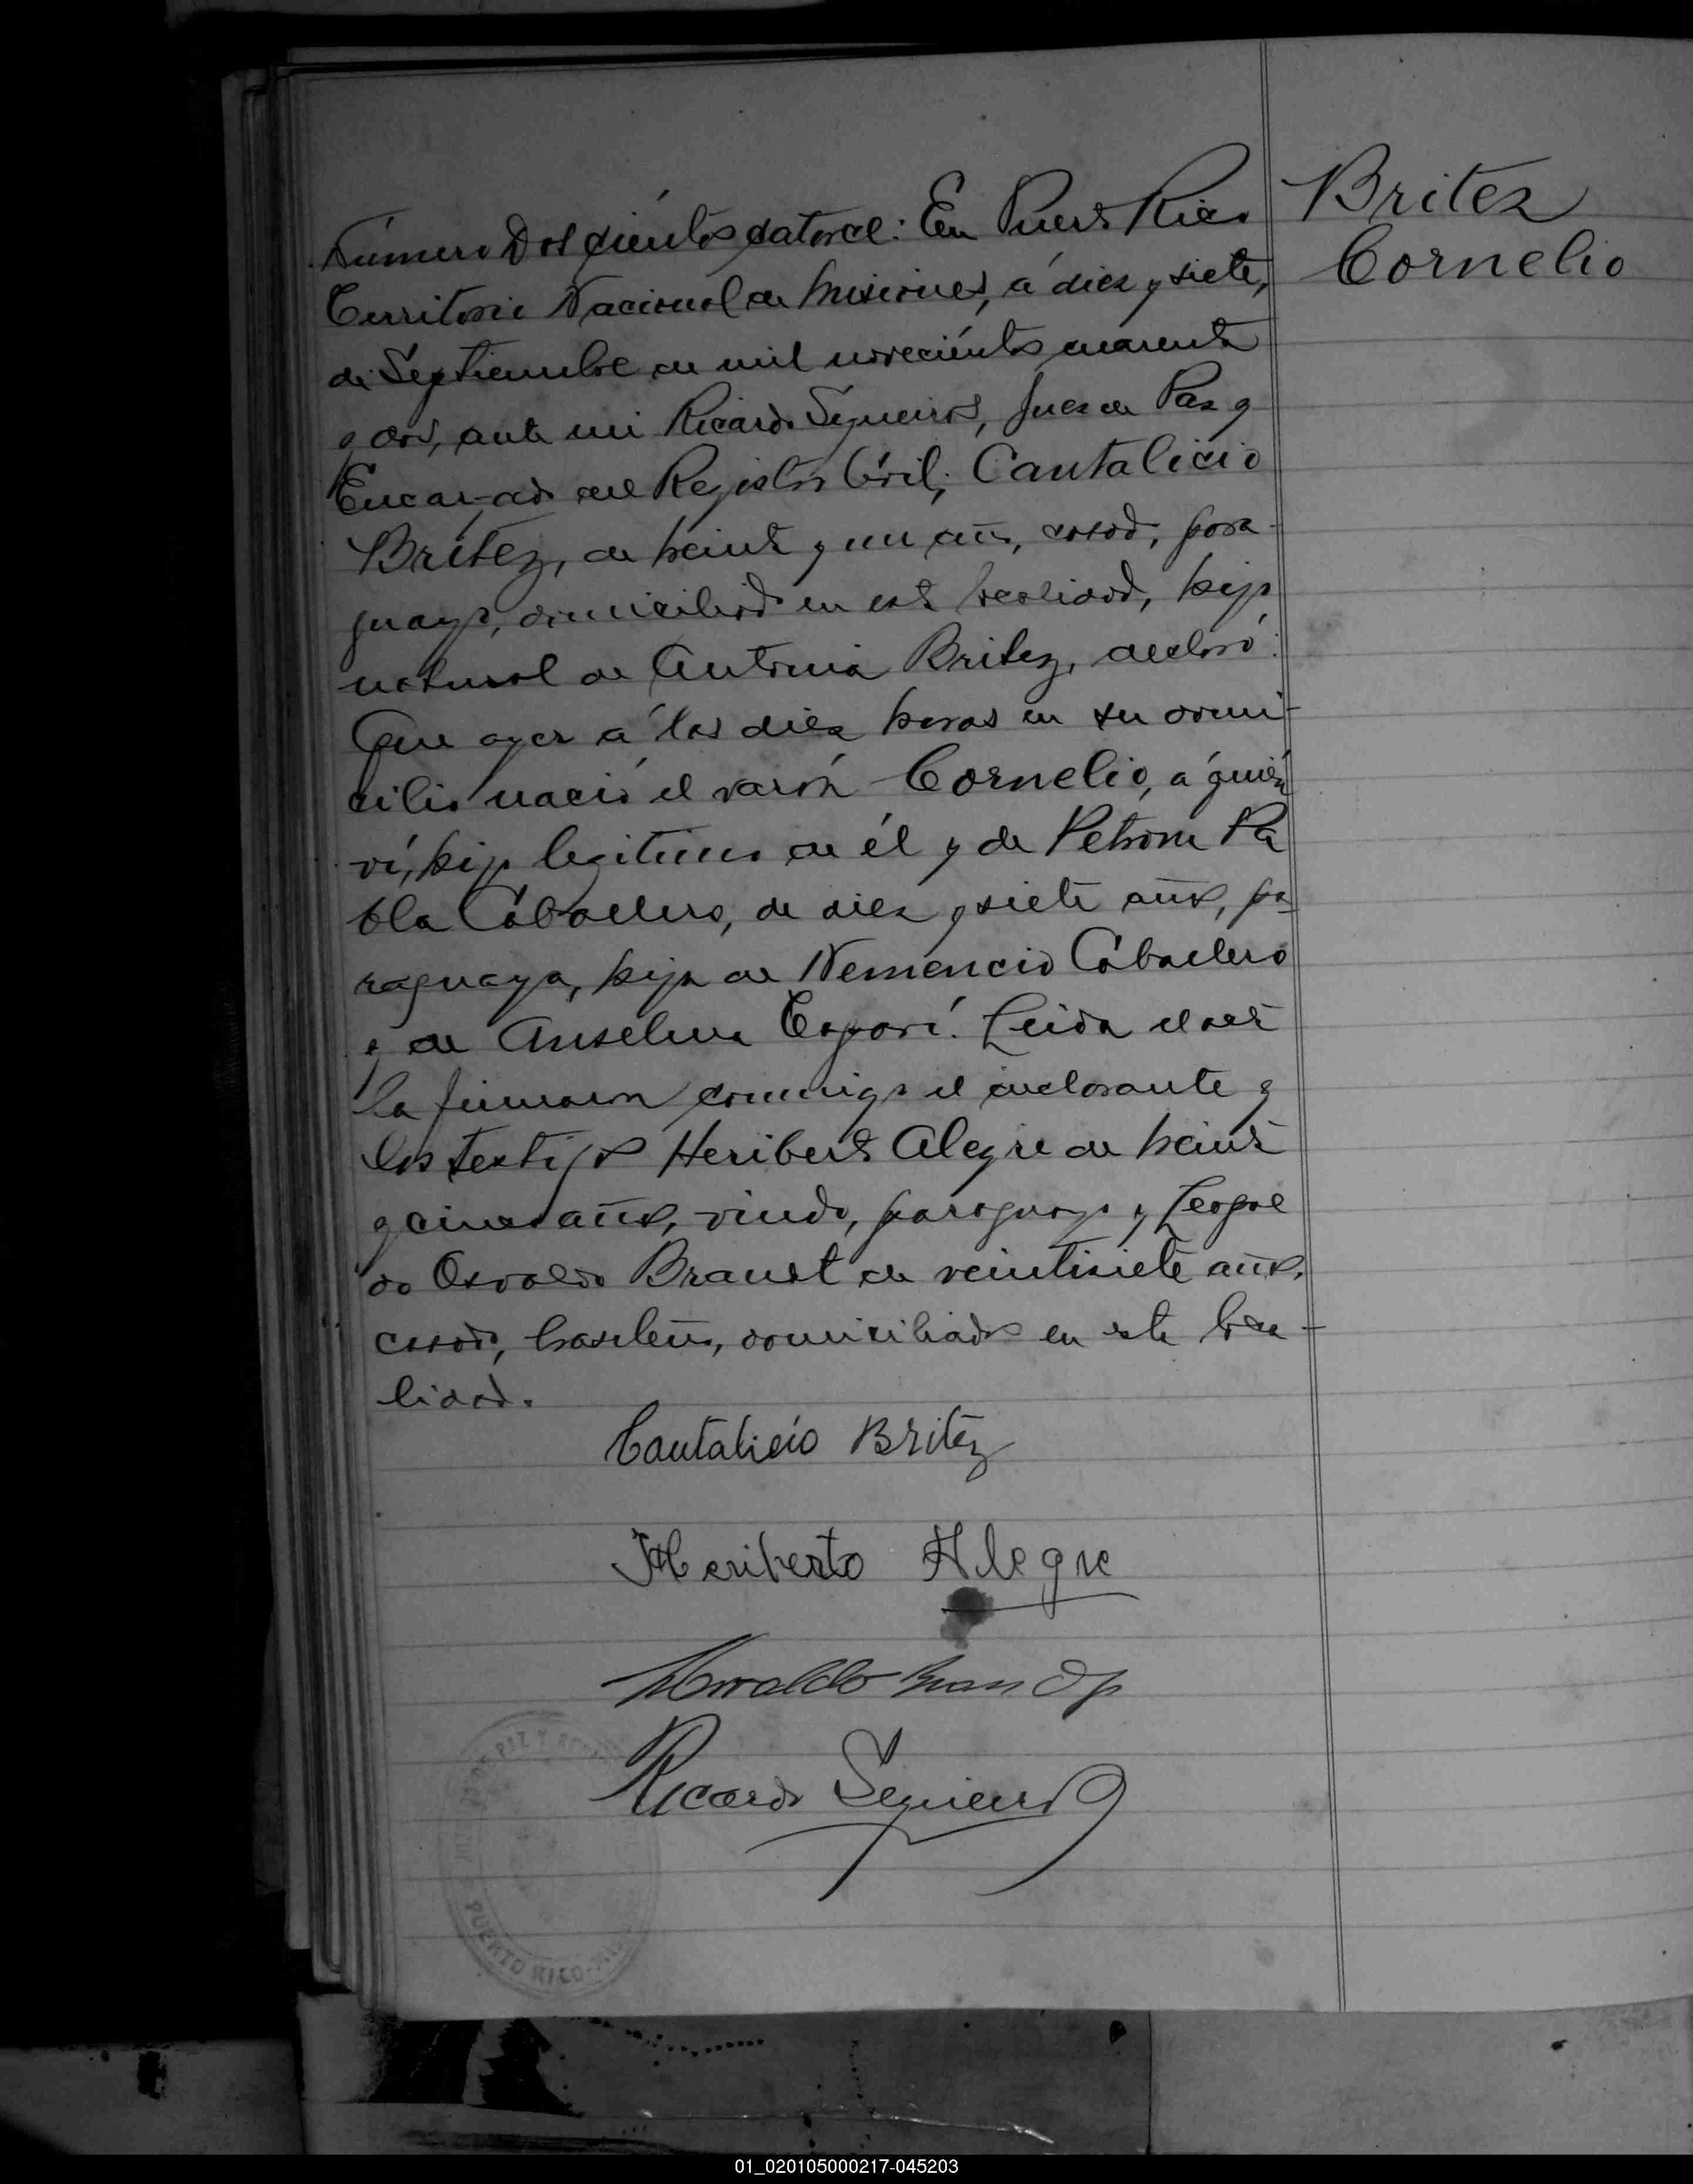 Número Doscientos catorce: En Puerto Rico
Territorio Nacional de Misiones, á diez y siete,
de Septiembre de mil novecientos cuarenta
y dos, ante mi Ricardo Sequeiros, Juez de Paz y
Encargado del Registro Civil; Cantalicio
Britez, de veinte y un años, casado, para-
guayo, domiciliado en esta localidad, hijo
natural de Antonia Britez, declaró:
Que ayer á las diez horas en su domi-
cilio nació el varón Cornelio, á quién
ví, hijo legitimo de él y de Petrona Pa
bla Cáballero, de diez y siete años, pa-
raguaya, hija de Nemencio Cáballero
y de Anselma. Leida el acta
la firmaron conmigo el declarante y
los testigos Heriberto Alegre de veinte
y cinco años, viudo, paraguayo y Leopol
do Osvaldo Braust de veintisiete años,
casado, brasileño, domiciliados en esta loca-
lidad.
Cantalicio Britez
Heriberto Alegre
Ricardo Sequeiros
Britez
Cornelio
PAZ Y
PUERTO RICO
01_020105000217-045203